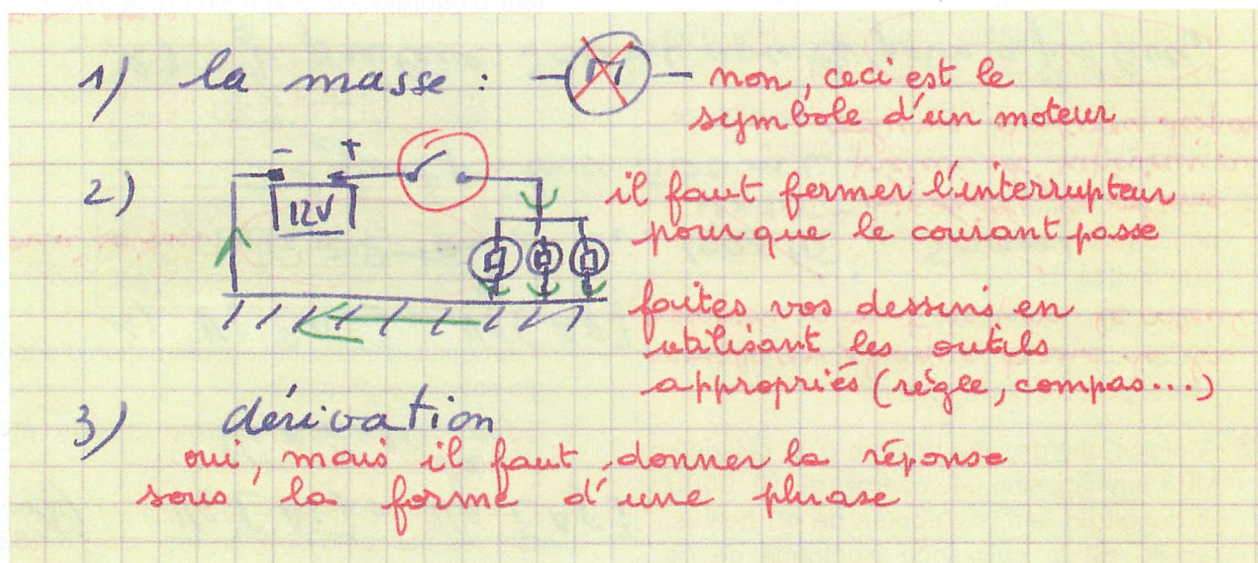 1) la masse : M non, ceci est le
symbole d'un moteur
- +
2) 12V il faut fermer l'interrupteur
pour que le courant passe
faites vos dessins en
utilisant les outils
appropriés (règle, compas...)
3) dérivation
oui, mais il faut donner la réponse
sous la forme d'une phrase